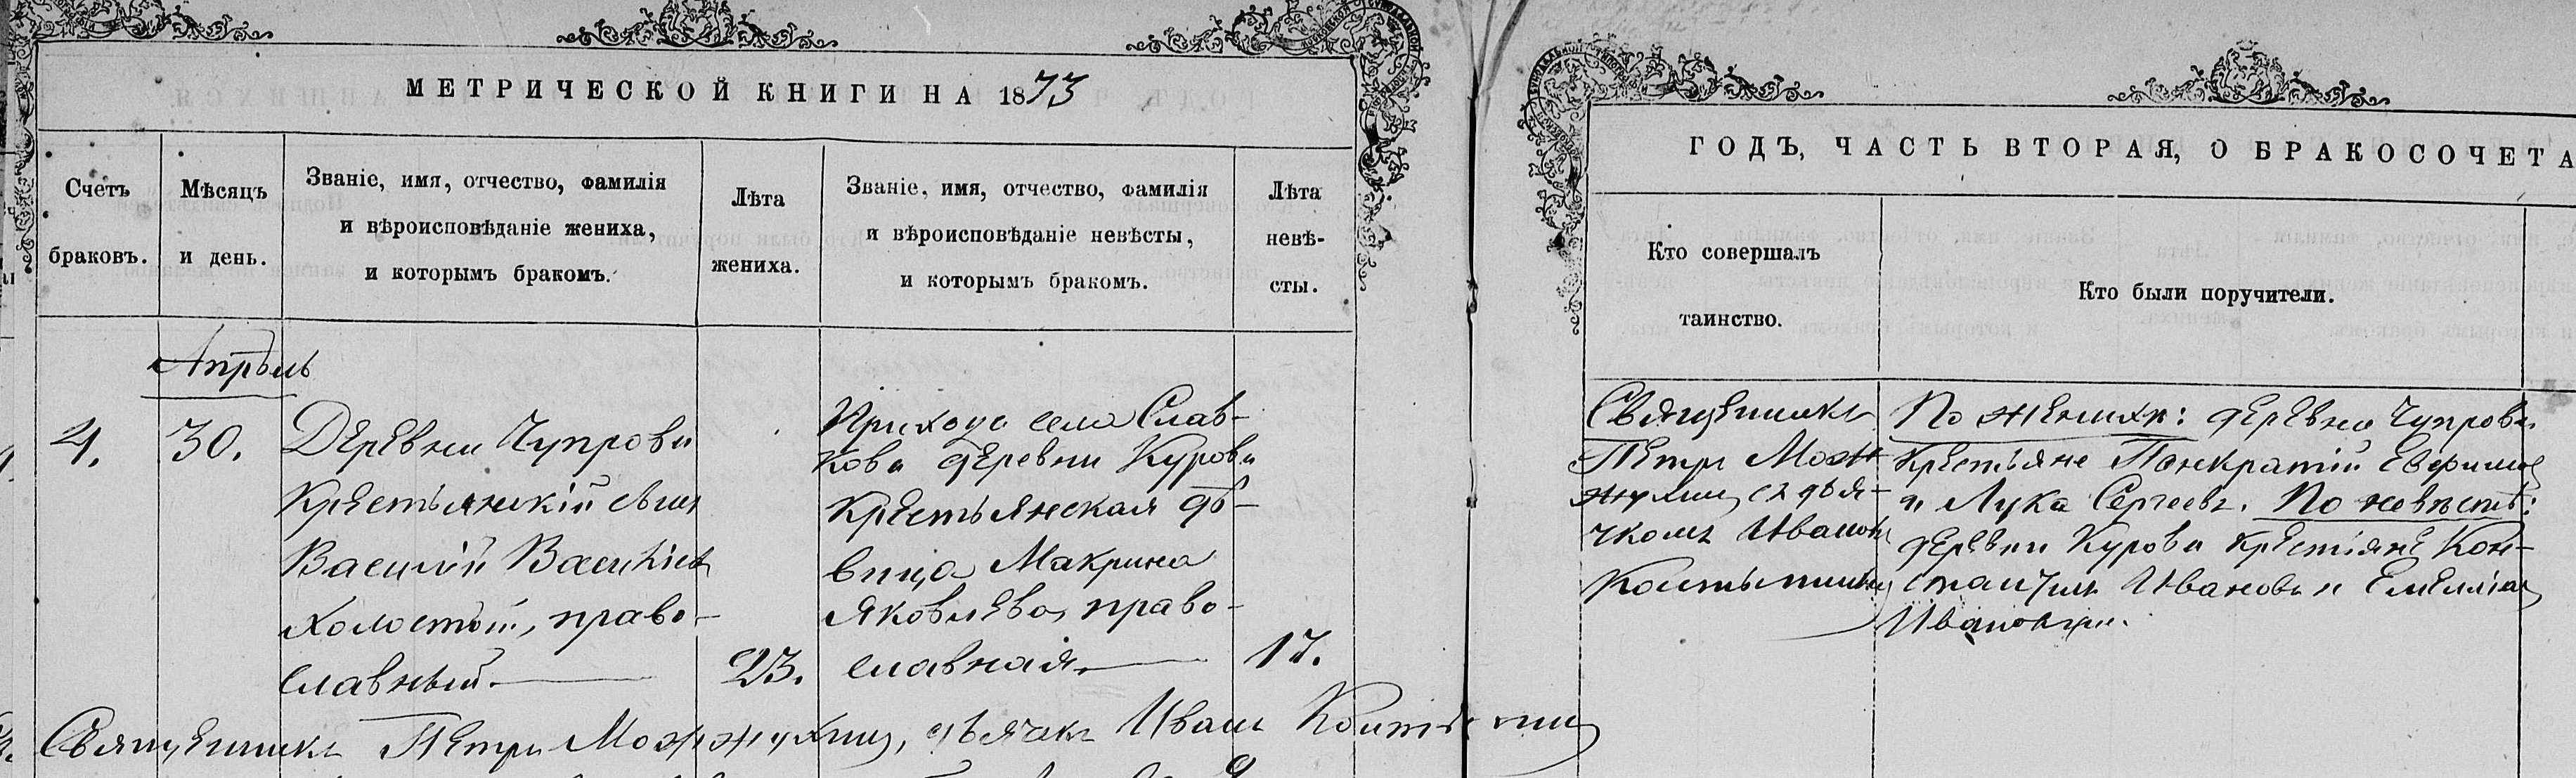 МЕТРИЧЕСКОЙ КНИГИ НА 1873
Счетъ браковъ.
Мѣсяцъ и день.
Званіе, имя, отчество, фамилія
и вѣроисповѣданіе жениха,
и которымъ бракомъ.
Лѣта жениха.
Званіе, имя, отчество, фамилія
и вѣроисповѣданіе невѣсты,
и которымъ бракомъ.
Лѣта
невѣ-
сты.
Апрѣль
4.
30.
Деревни Чупрова
Крестьянскій сынъ
Василій Васильевъ
холостый, право-
славный.
23.
Прихода села Слав-
кова деревни Курова
Крестьянская дѣ-
вица Макрина
Яковлева, право-
славная.
17.
Священникъ Петръ Можжухинъ, дьячекъ Иванъ
ГОДЪ, ЧАСТЬ ВТОРАЯ, О БРАКОСОЧЕТА
Кто совершалъ
таинство.
Кто были поручители.
Священникъ
Петръ Мож-
жухинъ съ дья-
чкомъ Иваномъ
По женихѣ: деревни Чупрова
Крестьяне Панкратій Евфимовъ
и Лука Сергеевъ. По невѣстѣ:
деревни Курова крестьяне Кон-
стантинъ Ивановъ и Емеліанъ
Ивановъ